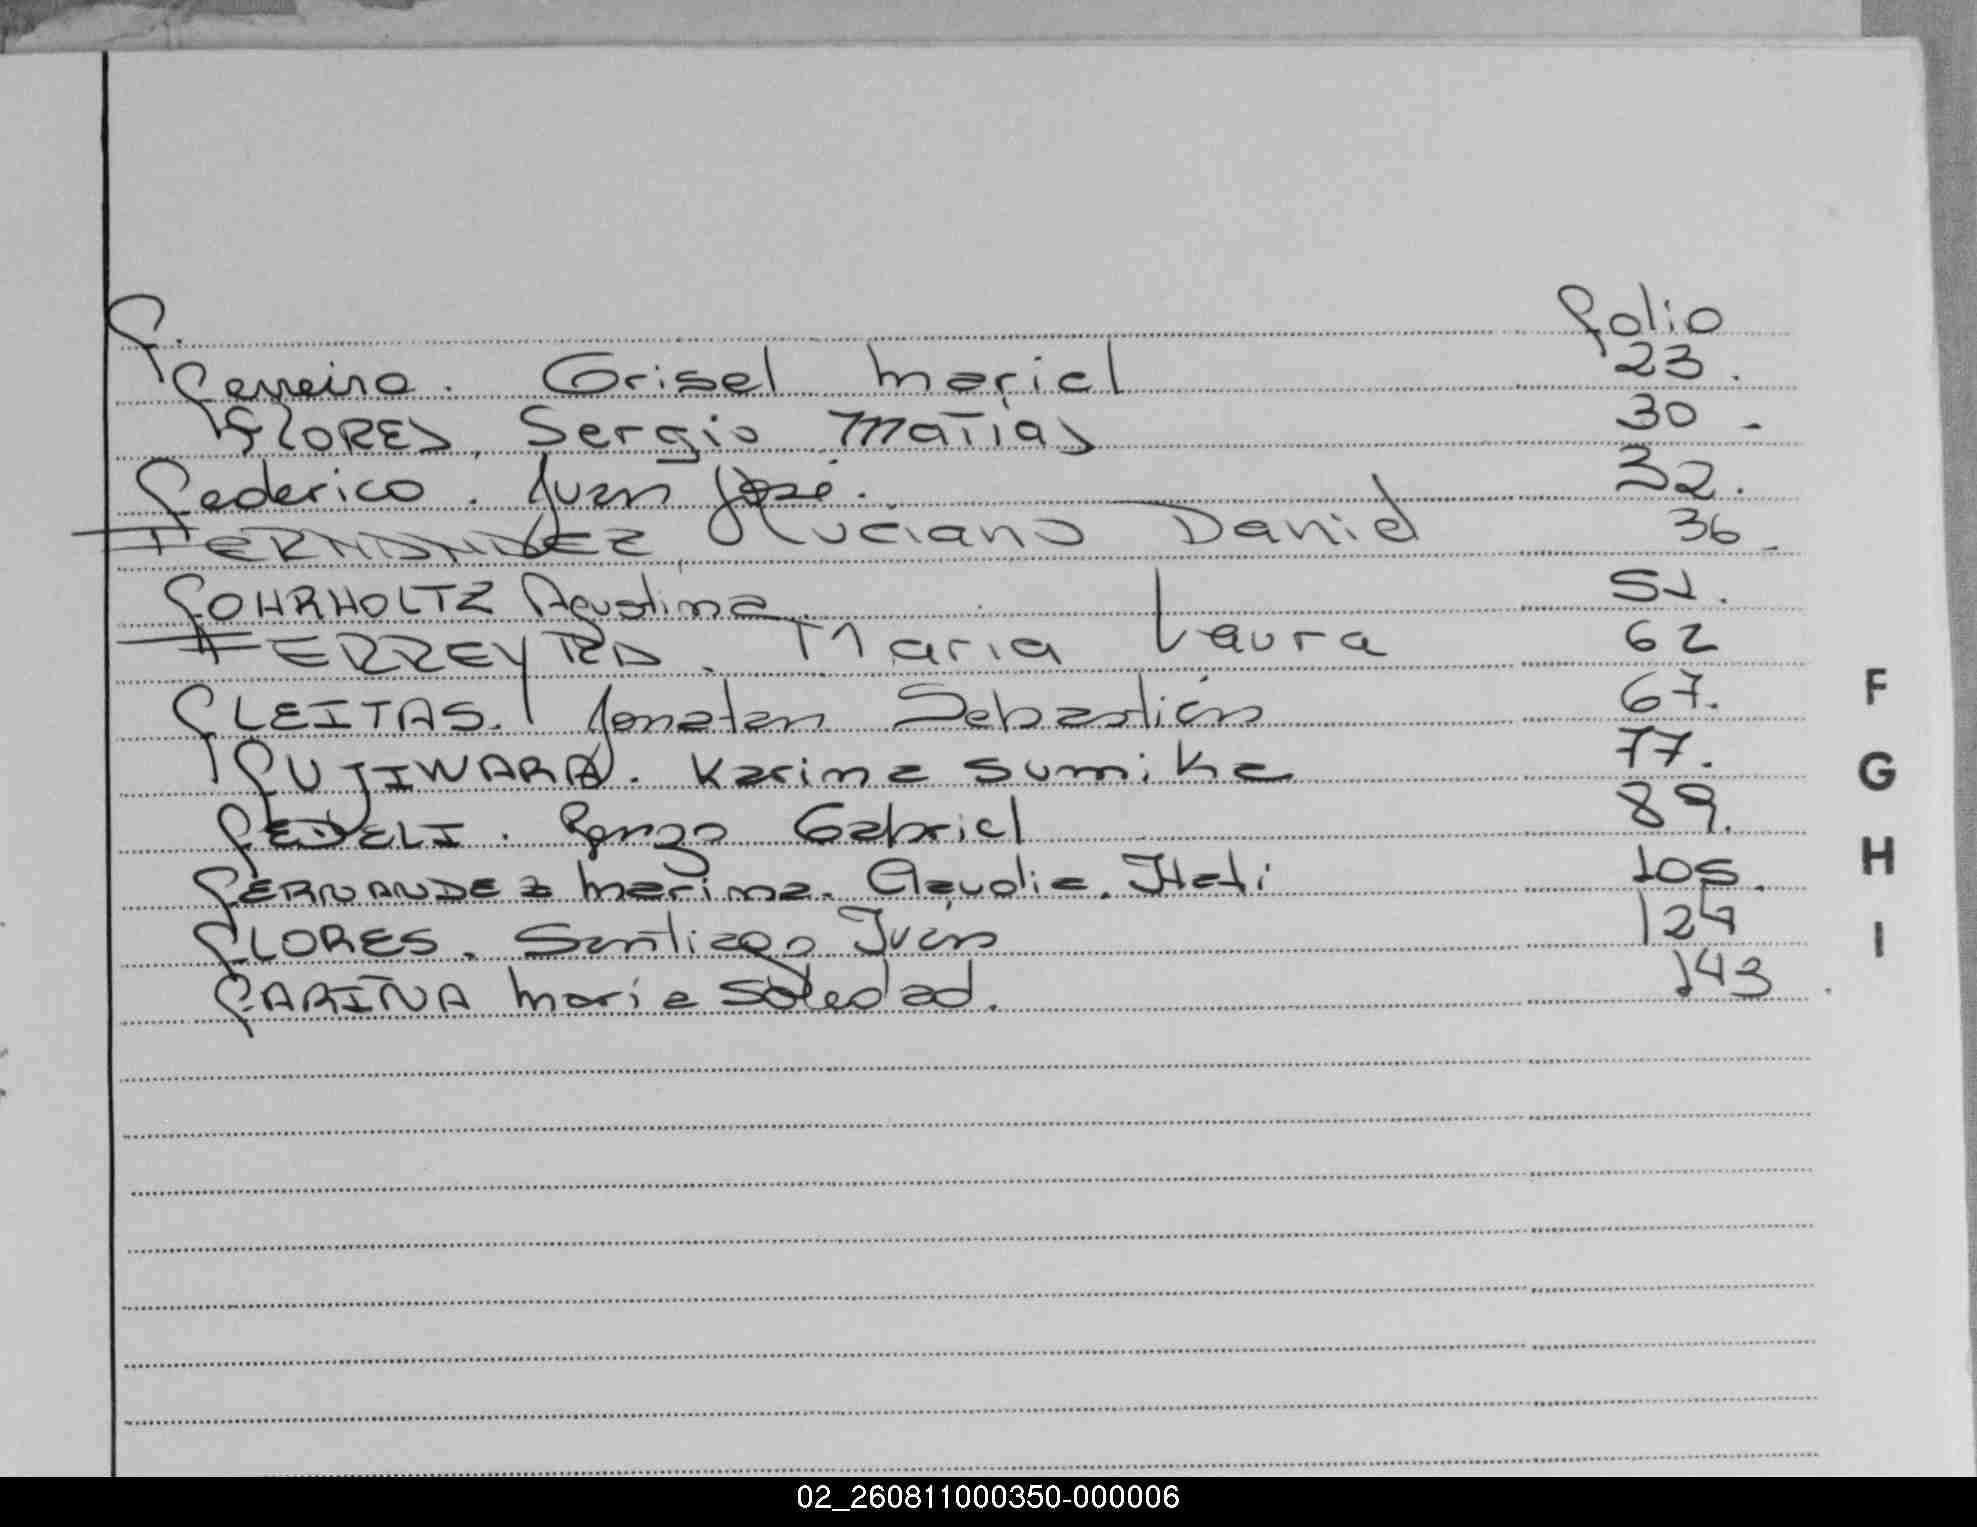 F. folio
Ferreira. Grisel Mariel 23.
FLORES, Sergio Matías 30.
Federico. Juan José. 32.
FERNANDEZ, Luciano Daniel 36.
FOHRHOLTZ Agustina. 51.
FERREYRA. Maria Laura 62
FLEITAS. Jonatan Sebastián 67.
FUJIWARA. Karina Sumika 77.
FEDELI. Renzo Gabriel 89.
FERNANDEZ Marina. Claudia. Itati 105.
FLORES. Santiago Iván 124
FARIÑA Maria Soledad. 143.
F
G
H
I
02_260811000350-000006